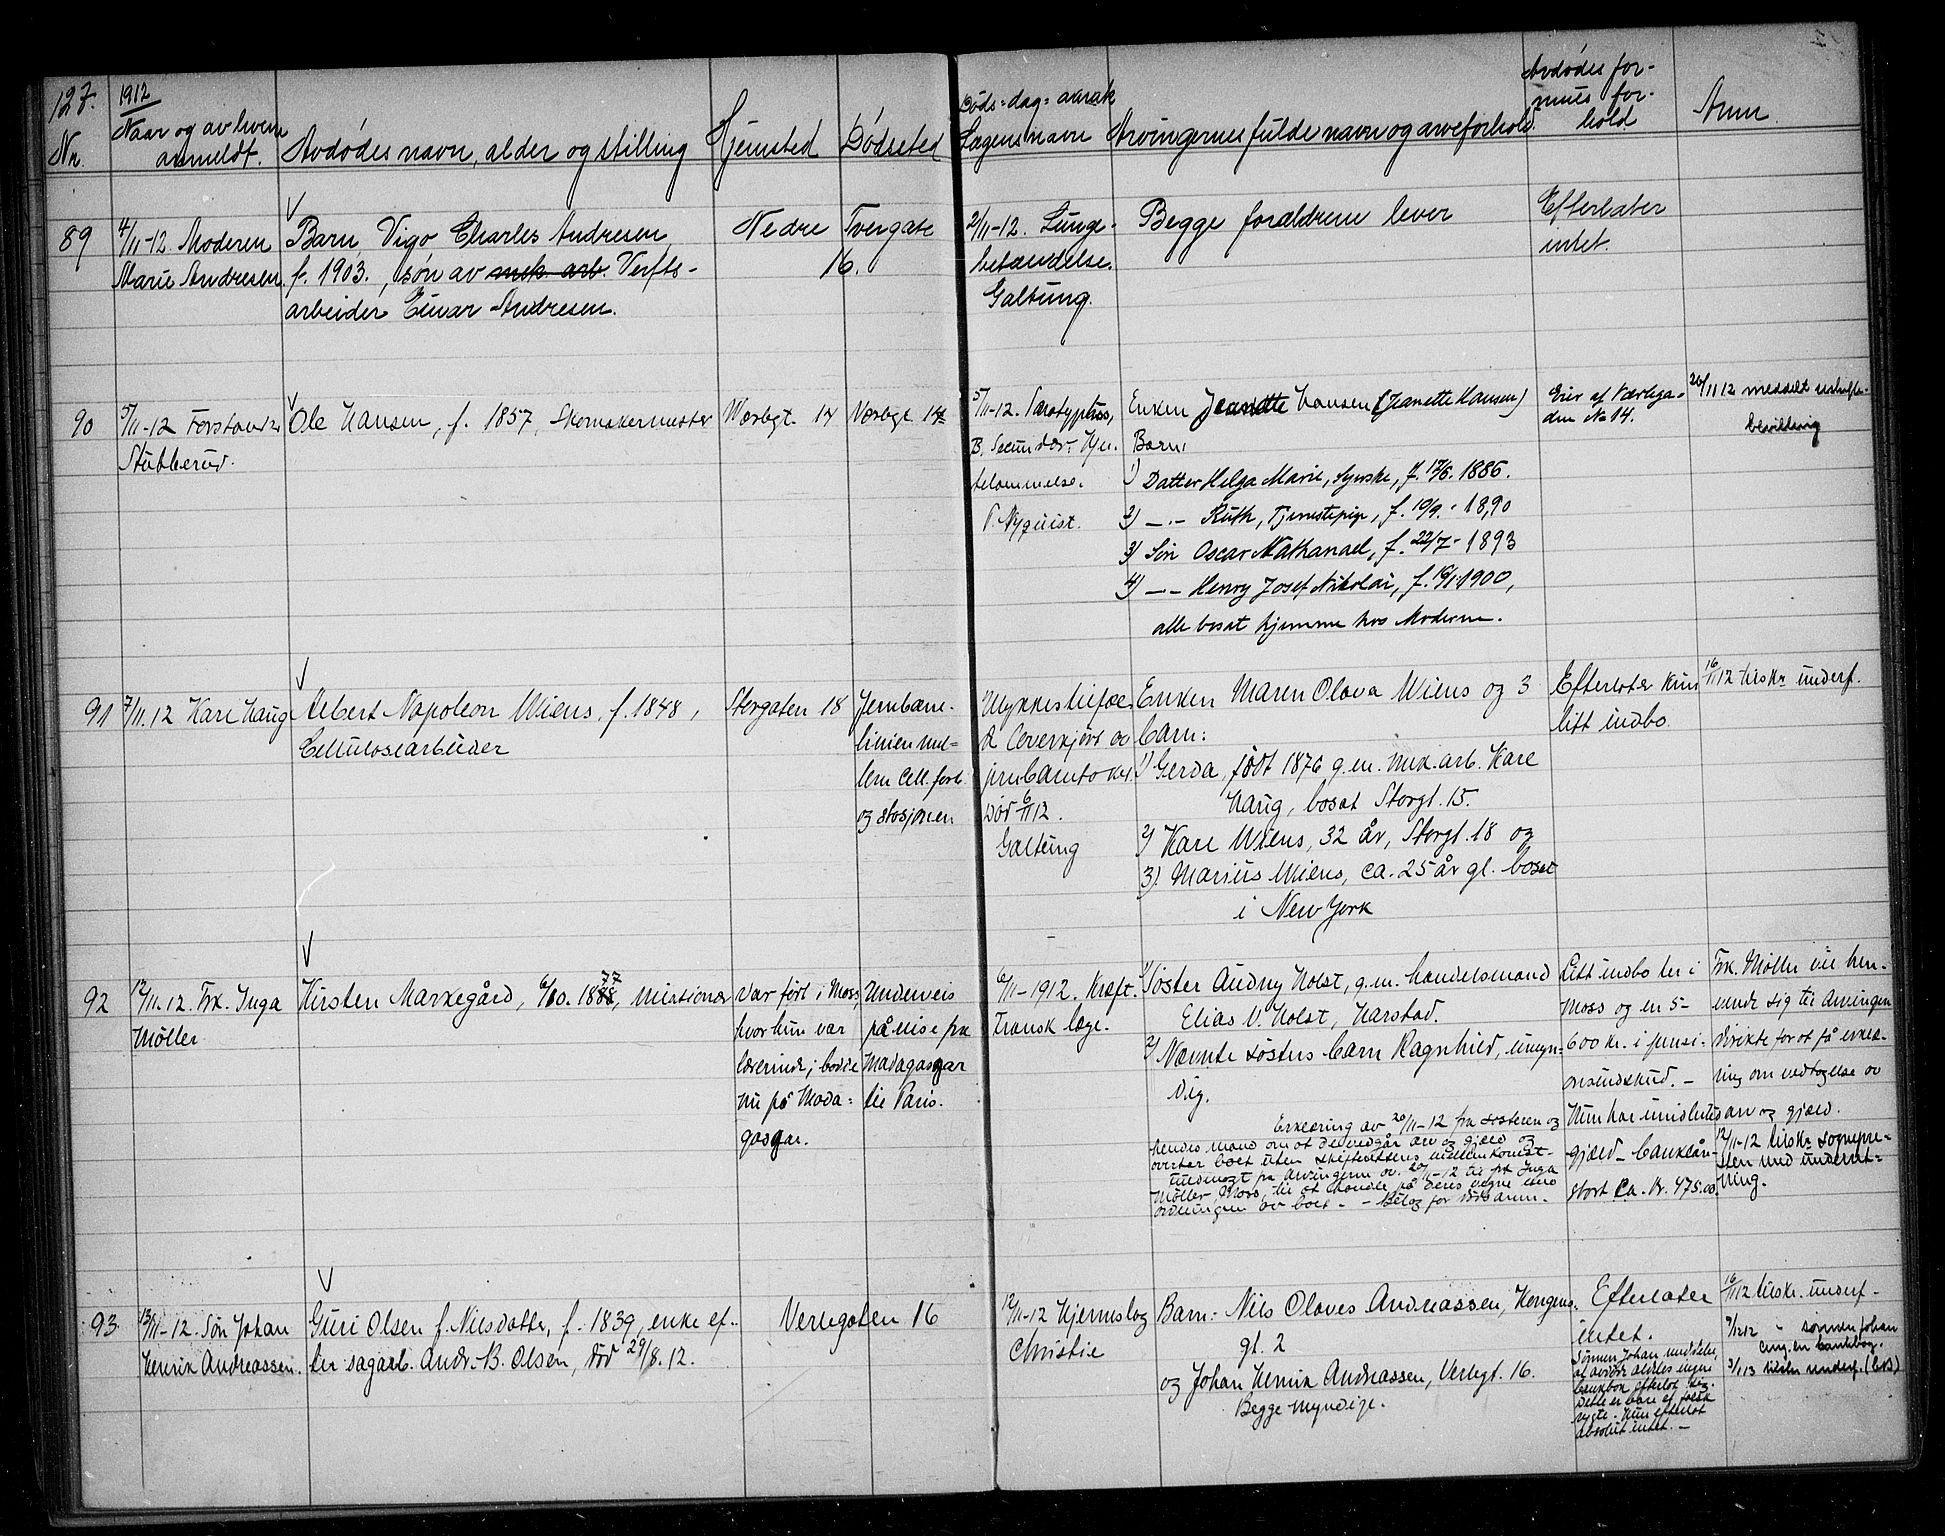 127.
1912
Nr.
Naar og av hvem
anmeldt.
Avdødes navn, alder og stilling
Hjemsted
Dødssted
Døds=dag=aarsak
Lægens navn
Arvingernes fulde navn og arveforhold.
Avdødes for-
mues for-
hold
Anm.
89
4/11-12. Moderen
Marie Andresen.
Barn Vigo Charles Andresen,
f. 1903., søn av mek. arb. Verfts-
arbeider Einar Andresen.
Nedre Tvergate
16.
2/11-12. Lunge-
betændelse.
Galtung.
Begge forældrene lever
Efterlater
intet.
90
5/11-12 Forstander
Stubberud.
Ole Hansen, f. 1857, Skomakermester
Værlegt. 14
Værlegt 14
5/11-12. Paratyphus,
B. Secundær. Hjer.
telammelse.
P. Nyquist.
Enken Jeanette Hansen (Jeanette Hansen)
Barn:
1) Datter Helga Marie, Syerske, f. 12/6. 1886.
2) —.— Ruth, Tjenestepige, f. 10/9. 1890
3) Søn Oscar Nathanael, f. 22/7- 1893
4) —.— Henry Josef Nikolai, f. 10/1. 1900,
alle bosat hjemme hos Moderen.
Eier af Værlega-
den No 14.
20/11 12 meddelt uskifte-
bevilling
91
7/11.12 Kare Haug
Albert Napoleon Wiens, f. 1848,
Cellulosearbeider
Storgaten 18
Jernbane-
linien mel-
lem Cell. fabr.
og stasjonen
Ulykkestilfæl-
de Overkjørt av
jernbanetoget.
Død 6/11 12.
Galtung
Enken Maren Olava Wiens og 3
barn:
1) Gerda, født 1876 g.m. mek. arb. Kare
Haug, bosat Storgt. 15.
2) Kare Wiens, 32 år, Storgt. 18 og
3). Marius Wiens, ca. 25 år gl. bosat
i New York
Efterlater kun
litt indbo.
16/11 12 tilskr. underf.
92
12/11.12. Frk. Inga
Møller
Kirsten Markegård, 6/10. 1888, 77 misionær
Var ført i Moss
hvor hun var
lærerinde; bodde
nu på Mada-
gasgar.
Underveis
på reise fra
Madagasgar
til Paris.
6/11-1912. Kræft.
Fransk læge.
1) Søster Audny Holst, g.m. handelsmand
Elias V. Holst, Harstad.
2) Nævnte søsters barn Ragnhild, umyn-
dig.
Erklæring av 20/11-12 fra søsteren og
hendes mand om at de vedgår arv og gjæld og
overtar boet uten skifterettens mellemkomst.
Fuldmagt fra arvingerne av. 20/11-12 til frk Inga
Møller, Moss, til at handle på deres vegne med
ordningen av boet. — Bilag for dødsanm.
Litt indbo her i
Moss og en 5-
600 kr. i pensi-
onsindskud. —
Hun har imidlertid
gjæld — banklån
stort ca. kr. 475.00.
Frk. Møller vil hen-
vende sig til arvingen
direkte for at få erklæ-
ring om vedtagelse av
arv og gjæld.
12/11-12 tilskr. sognepre-
sten med underret-
ning.
93
13/11-12. Søn Johan
Henrik Andreassen.
Guri Olsen f. Nilsdatter, f. 1839, enke ef-
ter sagarb. Andr. B. Olsen, død 29/8. 12.
Verlegaten 16
12/11-12 Hjerneslag
Christie
Barn: Nils Olaves Andreassen, Kongens-
gt. 2
og Johan Henrik Andreassen, Verlegt. 16.
Begge myndige.
Efterlater
intet.
Sønnen Johan meddeler,
at avdøde aldeles ingen
bankbok efterlot sig.
Dette er bare et falsk
rygte. Hun efterlot
absolut intet. —
16/11 12 tilskr. underf.
9/12 12 — sønnen Johan
ang. en bankbog.
3/1 13 tilskr. underf.